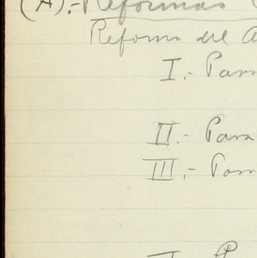 (A).- Reformas
Reforma del A
I.- Para
II.- Para
III.- Para